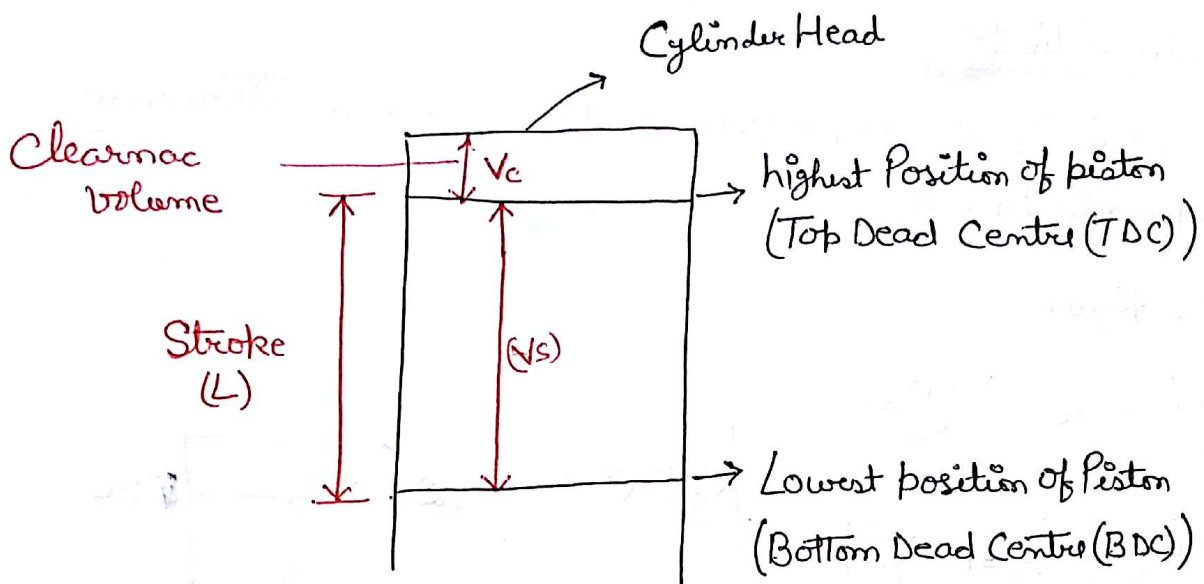 Cylinder Head
Clearnac
volume
Vc
highest Position of piston
(Top Dead Centre (TDC))
Stroke
(L)
(Vs)
Lowest position of Piston
(Bottom Dead Centre (BDC))